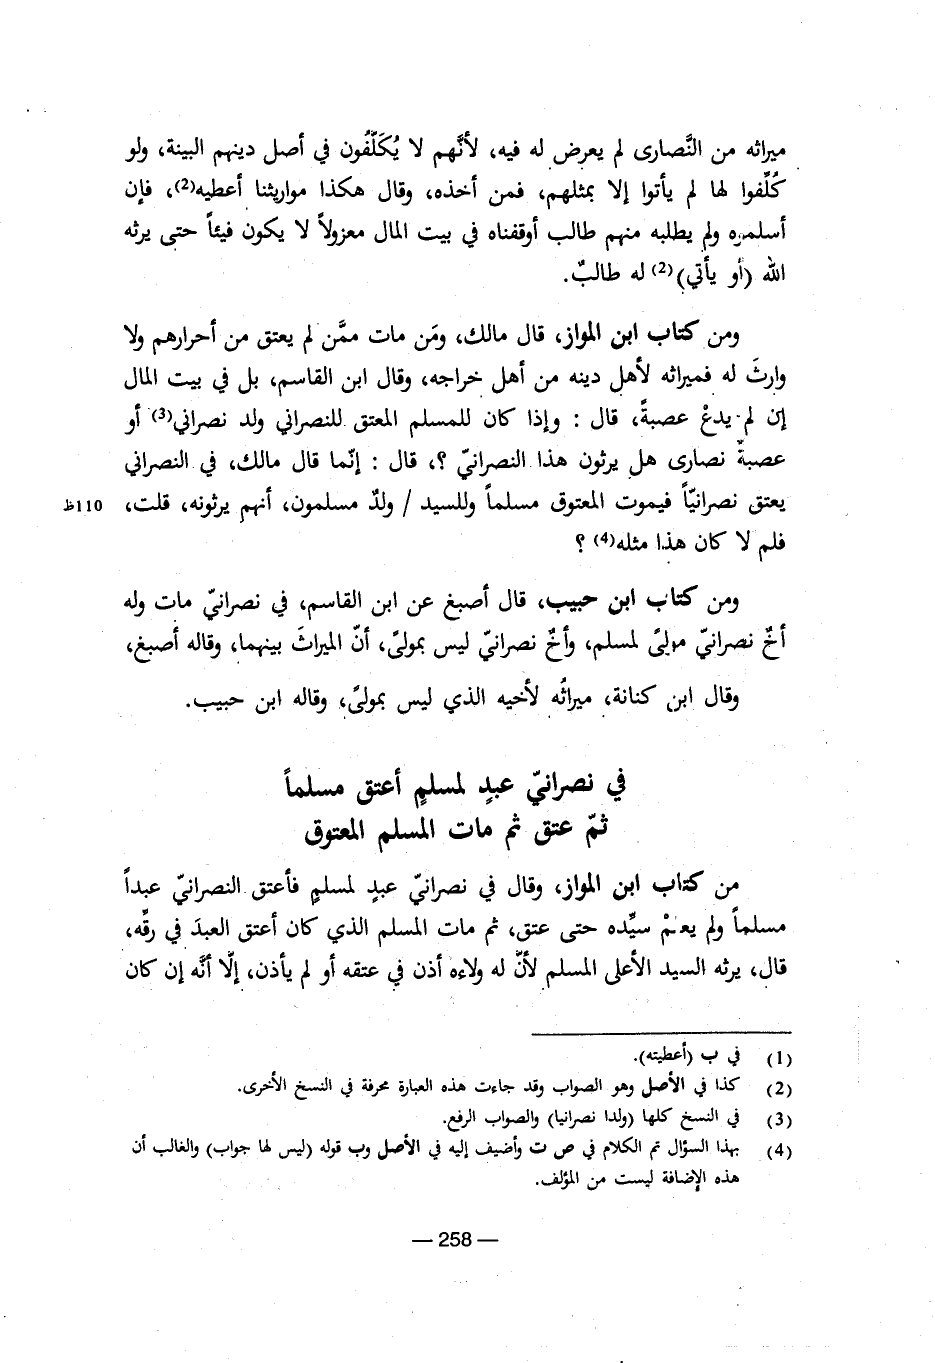 ميراثه من النَّصارى لم يعرض له فيه، لأنَّهم لا يُكَلَّفُون في أصل دينهم البينة، ولو
كُلِّفوا لها لم يأتوا إلا بمثلهم، فمن أخذه، وقال هكذا مواريثنا أعطيه(2)، فإن
أسلموه ولم يطلبه منهم طالب أوقفناه في بيت المال معزولاً لا يكون فيئاً حتى يرثه
الله (أو يأتي)(2) له طالبٌ.
ومن كتاب ابن المواز، قال مالك، ومَن مات ممَّن لم يعتق من أحرارهم ولا
وارثَ له فميراثه لأهل دينه من أهل خراجه، وقال ابن القاسم، بل في بيت المال
إن لم يدعْ عصبةً، قال : وإذا كان للمسلم المعتق للنصراني ولد نصراني(3) أو
عصبةٌ نصارى هل يرثون هذا النصرانيّ ؟، قال : إنّما قال مالك، في النصراني
يعتق نصرانيّاً فيموت المعتوق مسلماً وللسيد / ولدٌ مسلمون، أنهم يرثونه، قلت، 110ظ
فلم لا كان هذا مثله(4) ؟
ومن كتاب ابن حبيب، قال أصبغ عن ابن القاسم، في نصرانيّ مات وله
أخٌ نصرانيّ مولىً لمسلم، وأخٌ نصرانيّ ليس بمولىً، أنّ الميراثَ بينهما، وقاله أصبغ،
وقال ابن كنانة، ميراثُه لأخيه الذي ليس بمولىً، وقاله ابن حبيب.
في نصرانيّ عبدٍ لمسلمٍ أعتق مسلماً
ثمّ عتق ثم مات المسلم المعتوق
من كتاب ابن المواز، وقال في نصرانيّ عبدٍ لمسلمٍ فأعتق النصرانيّ عبداً
مسلماً ولم يعلمْ سيِّده حتى عتق، ثم مات المسلم الذي كان أعتق العبدَ في رقِّه،
قال، يرثه السيد الأعلى المسلم لأنّ له ولاءه أذن في عتقه أو لم يأذن، إلّا أنَّه إن كان
(1) في ب (أعطيته).
(2) كذا في الأصل وهو الصواب وقد جاءت هذه العبارة محرفة في النسخ الأخرى.
(3) في النسخ كلها (ولدا نصرانيا) والصواب الرفع.
(4) بهذا السؤال تم الكلام في ص ت وأضيف إليه في الأصل وب قوله (ليس لها جواب) والغالب أن
هذه الإضافة ليست من المؤلف.
— 258 —